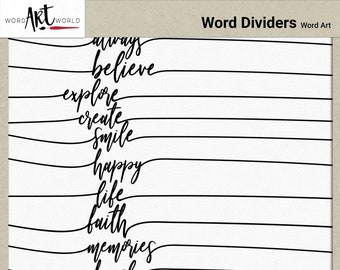 WORD ART WORLD
Word Dividers Word Art
always
believe
explore
create
smile
happy
life
faith
memories